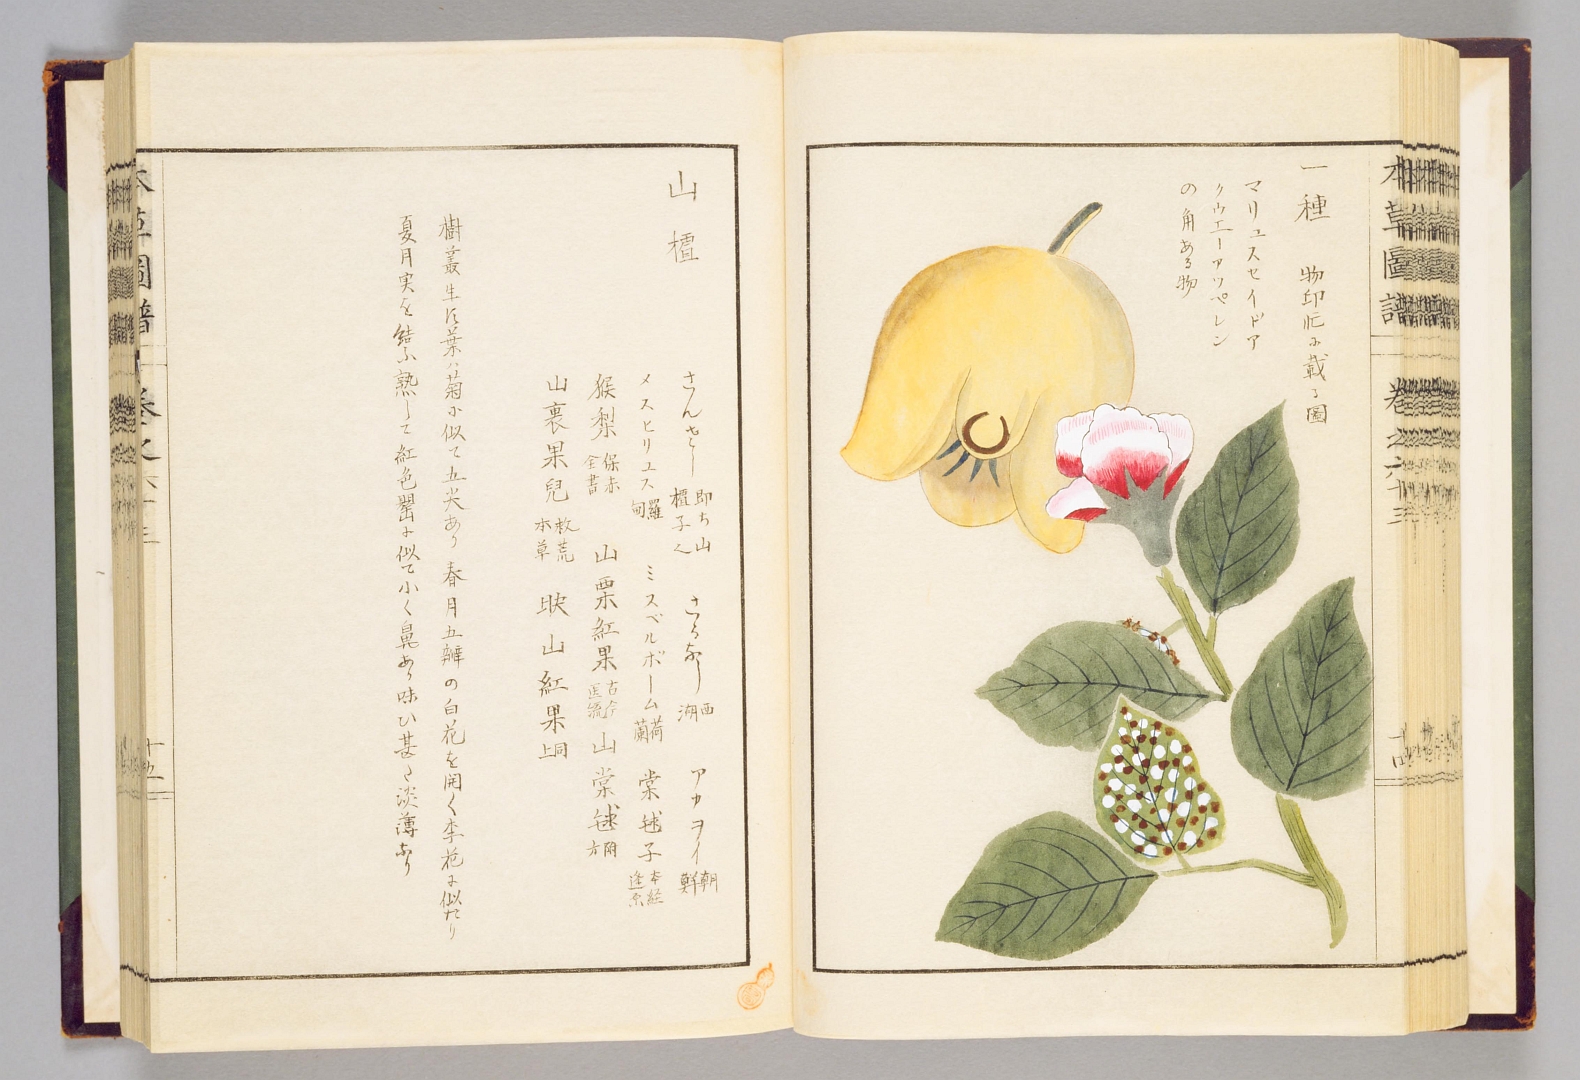 本草圖譜 卷之六十三
一種 物印忙に載る圖
マリュスセイドア
クウエーアツペレン
の角ある物
山樝
さんざし 即ち山樝子 さるなし 西湖 アカヲイ 朝鮮
メスヒリュス 羅甸 ミスペルボーム 荷蘭 棠毬子 本経逢原
猴梨 保赤全書 山栗紅果 古今医統 山棠毬 附方
山裏果兒 救荒本草 映山紅果 同上
樹叢生に葉ハ菊に似て五尖あり 春月五瓣の白花を開く李花に似たり
夏月実を結ふ熟して紅色に似て小く鼻あり味ひ甚た淡薄なり